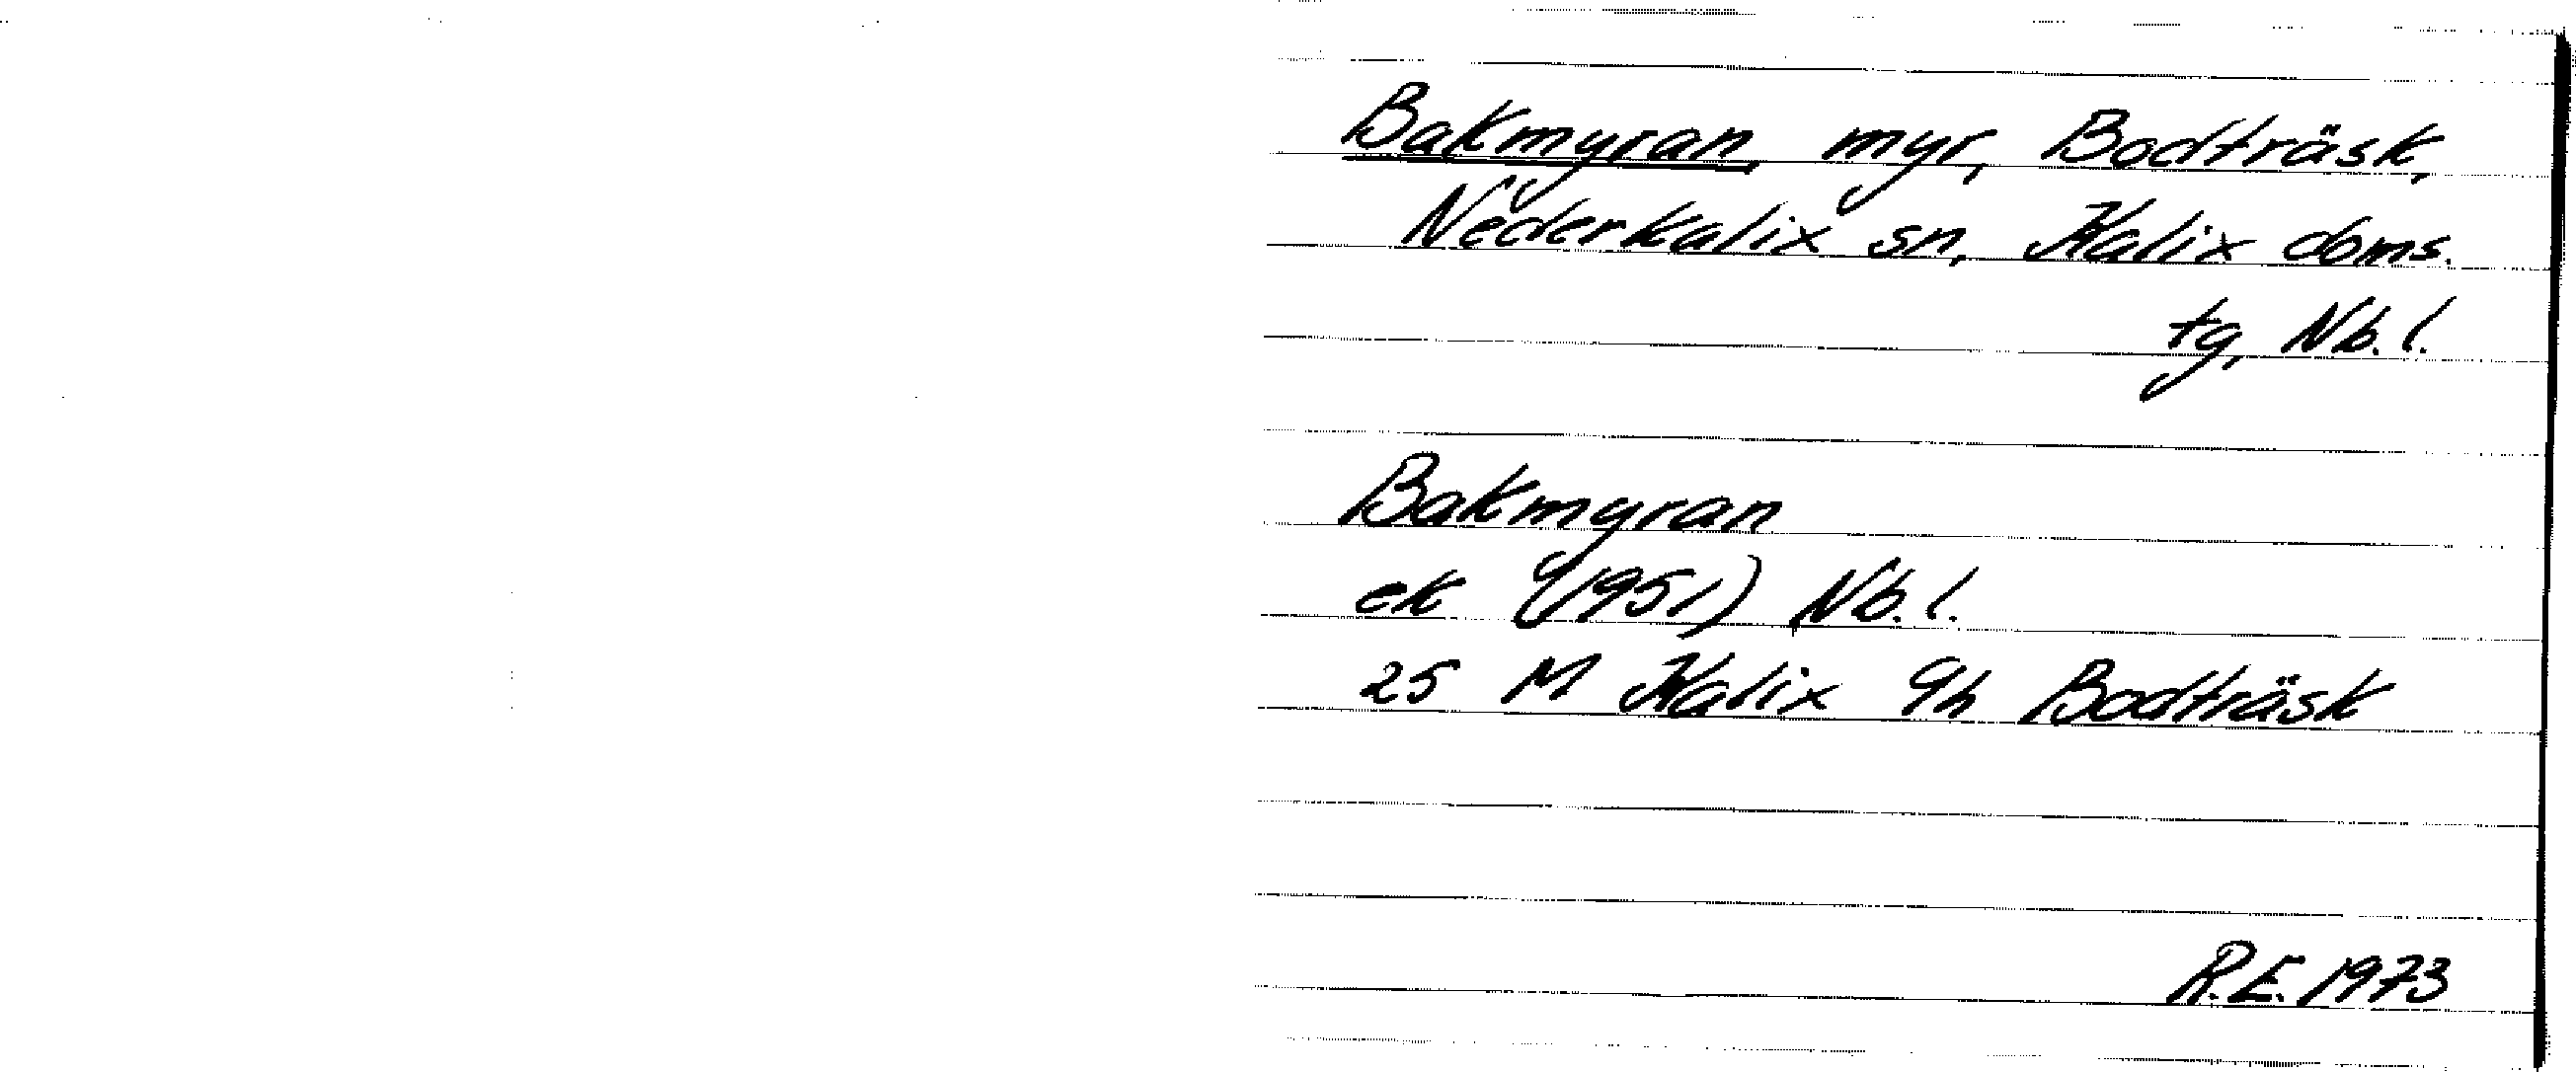 Bakmyran, myr, Bodträsk,
Nederkalix sn, Kalix doms.
tg, Nb.l.
Bakmyran
ek (1951) Nb.l.
25 M Kalix 9h Bodträsk
R.E. 1973